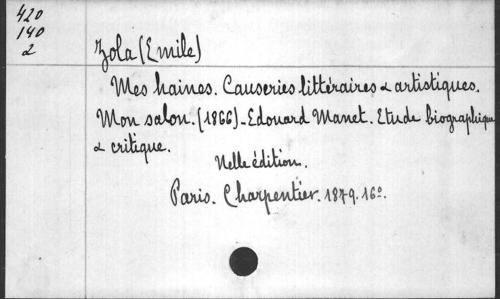 420
140
2
Zola (Emile)
Mes haines. Causeries littéraires & artistiques.
Mon salon. (1866) - Edouard Manet. Etude biographique
& critique.
Nelle édition.
Paris. Charpentier. 1879. 16º.